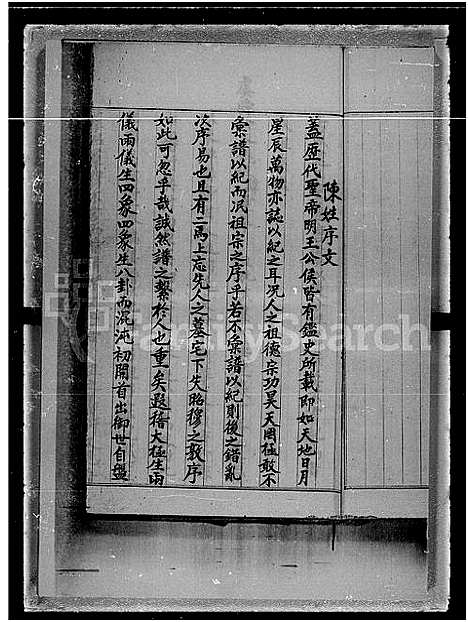 陳姓序文
蓋歷代聖帝明王公侯皆有鑑史所載即如天地日月
星辰萬物亦誌以紀之耳况人之祖德宗功昊天罔極敢不
彙譜以紀而况祖宗之序乎若不彙譜以紀則後之錯亂
次序易也且有二焉上忘先人之墓宅下失昭穆之数序
如此可忽乎哉誠然譜之繫於人也重矣溯稽太極生兩
儀兩儀生四象四象生八卦而混沌初開首出御世自盤
FamilySearch